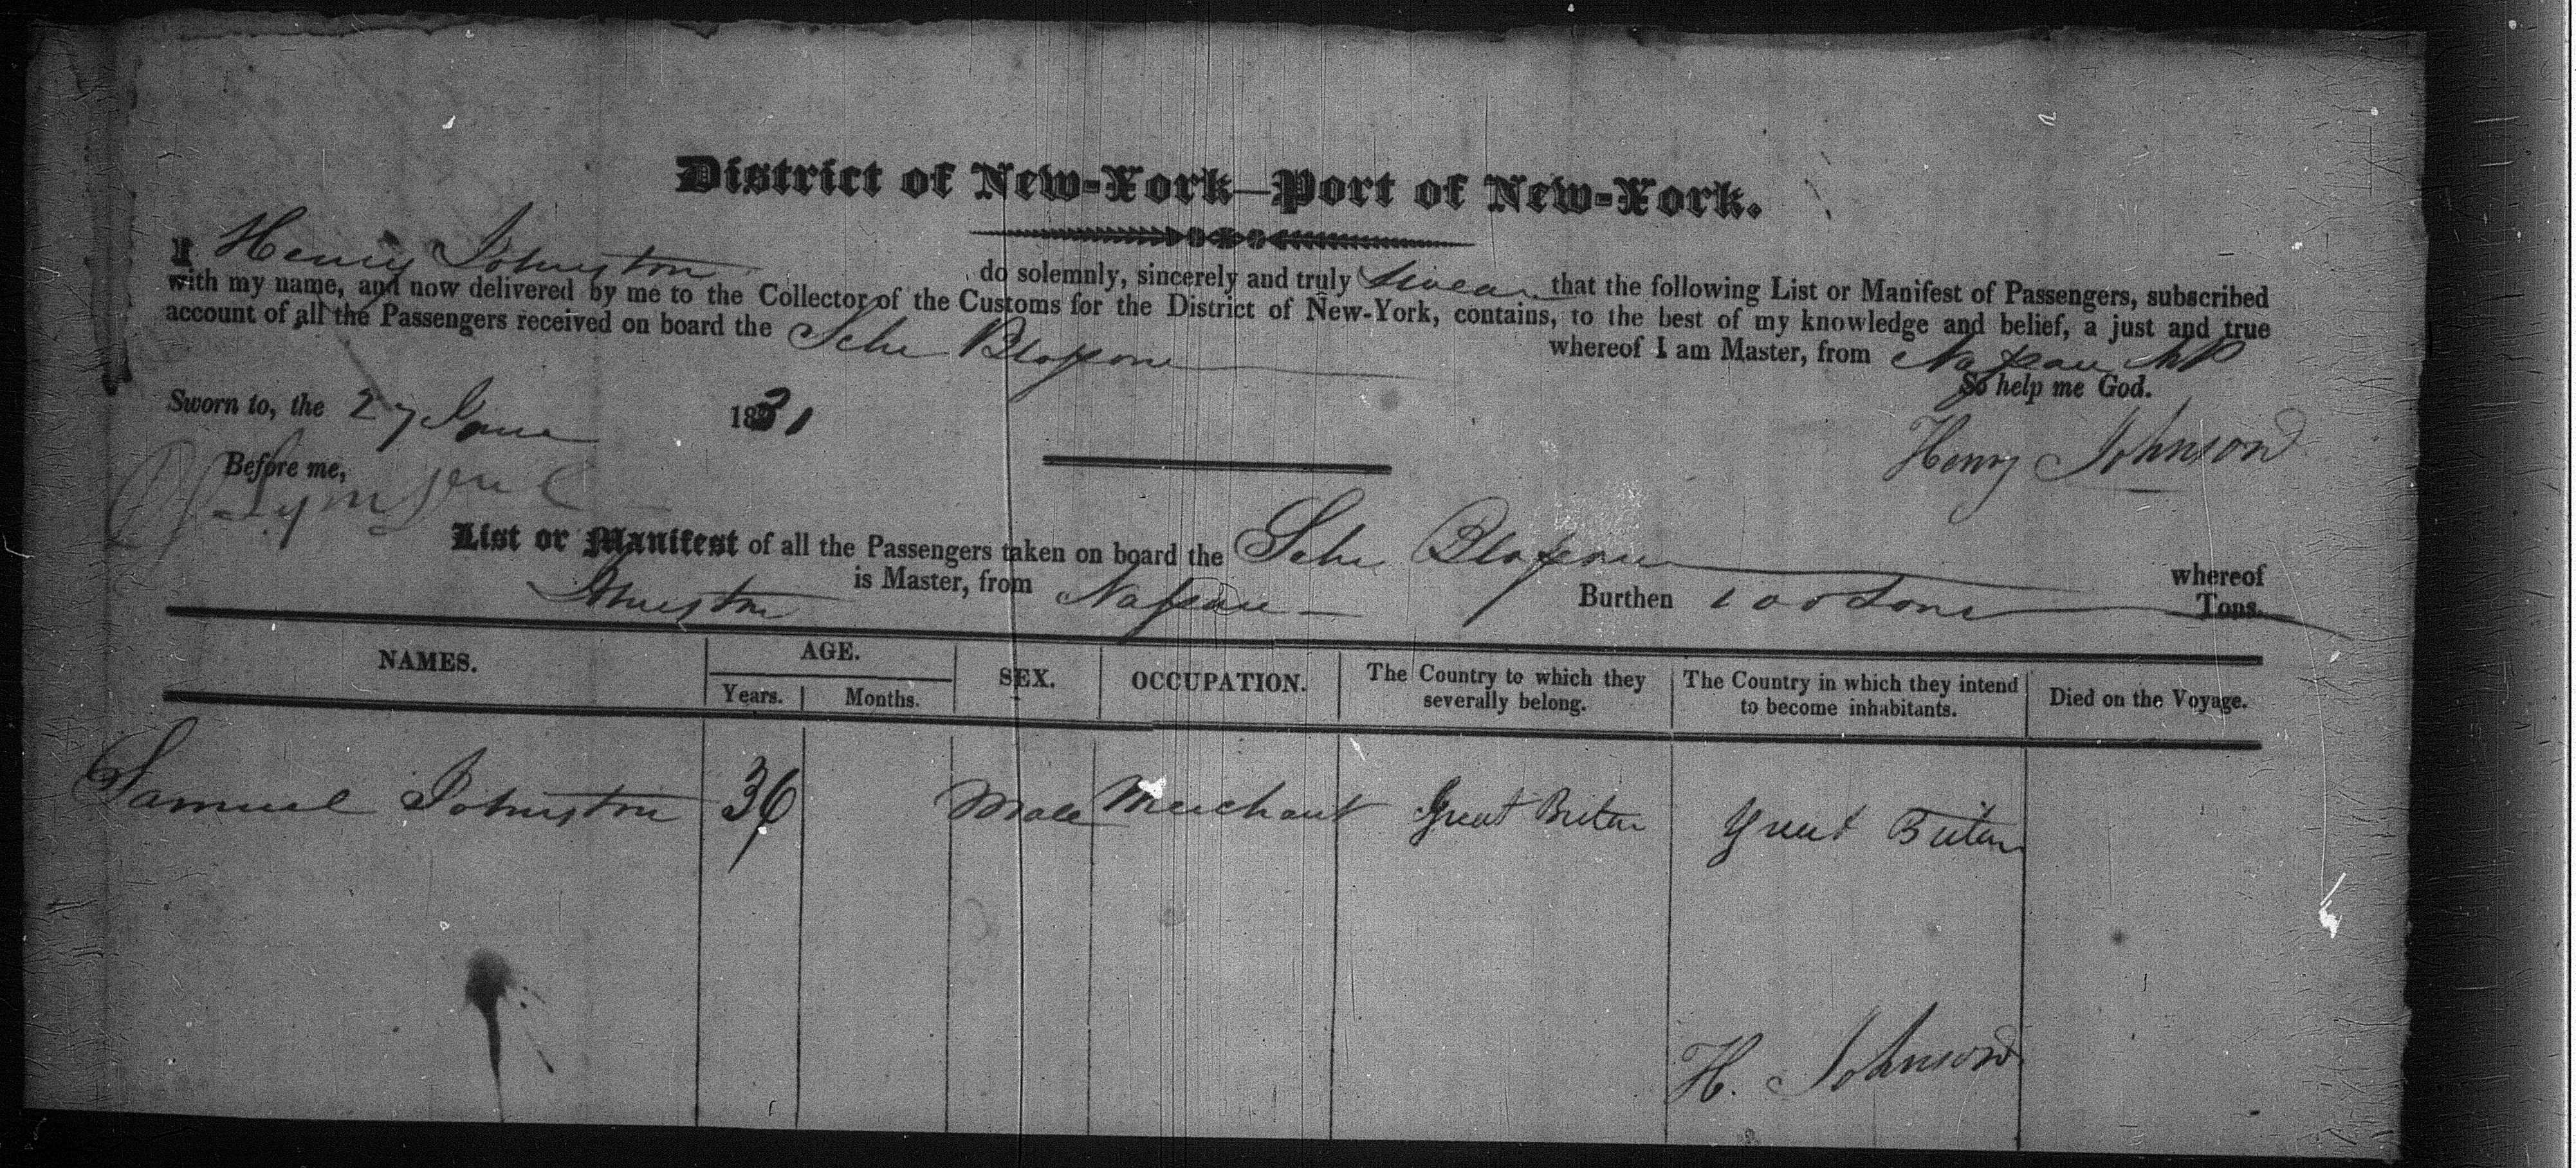 District of New-York—Port of New-York.
I Henry Johnston do solemnly, sincerely and truly swear that the following List or Manifest of Passengers, subscribed
with my name, and now delivered by me to the Collector of the Customs for the District of New-York, contains, to the best of my knowledge and belief, a just and true
account of all the Passengers received on board the Schr whereof I am Master, from Nassau NP
So help me God.
Sworn to, the 27 June 1831
Henry Johnson
Before me,
List or Manifest of all the Passengers taken on board the Schr whereof
Johnston is Master, from Nassau Burthen 100 Tons Tons.
NAMES. AGE. SEX. OCCUPATION. The Country to which they severally belong. The Country in which they intend to become inhabitants. Died on the Voyage.
Years. Months.
Samuel Johnston 36 Male Merchant Great Britan Great Britan
H. Johnson